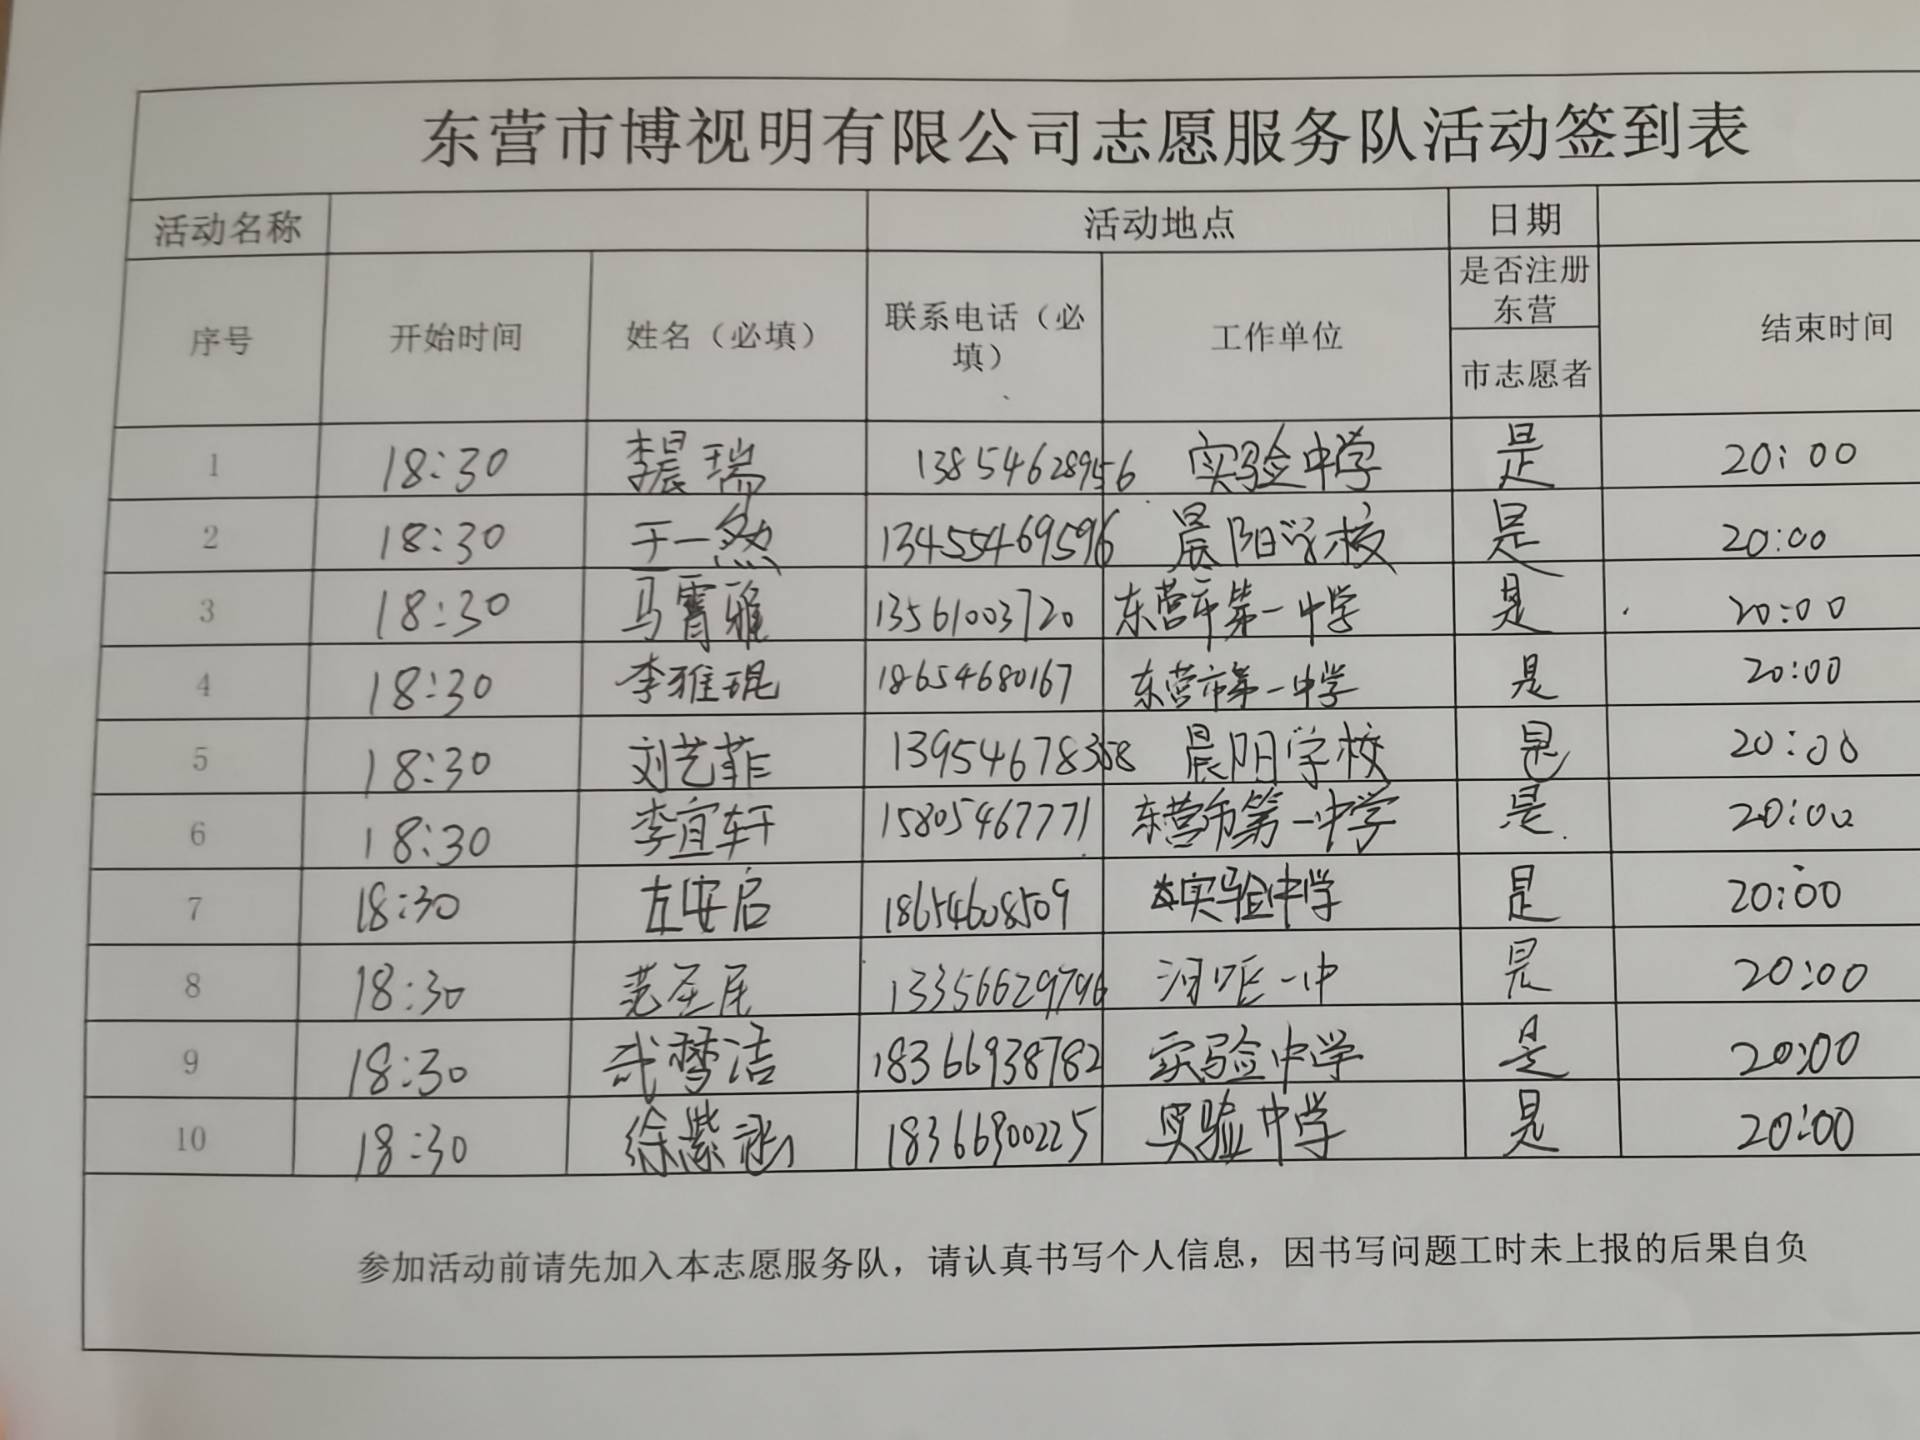 东营市博视明有限公司志愿服务队活动签到表
活动名称 活动地点 日期
序号 开始时间 姓名（必填） 联系电话（必填） 工作单位 是否注册东营市志愿者 结束时间
1 18:30 李晨瑞 13854628956 实验中学 是 20:00
2 18:30 于一然 13455469596 晨阳学校 是 20:00
3 18:30 马霄雅 13561003720 东营市第一中学 是 20:00
4 18:30 李雅琨 18654680167 东营市第一中学 是 20:00
5 18:30 刘艺菲 13954678358 晨阳学校 是 20:00
6 18:30 李宜轩 15805467771 东营市第一中学 是 20:00
7 18:30 左安启 18654608509 实验中学 是 20:00
8 18:30 13356629796 一中 是 20:00
9 18:30 武梦洁 18366938782 实验中学 是 20:00
10 18:30 徐紫涵 18366900225 实验中学 是 20:00
参加活动前请先加入本志愿服务队，请认真书写个人信息，因书写问题工时未上报的后果自负